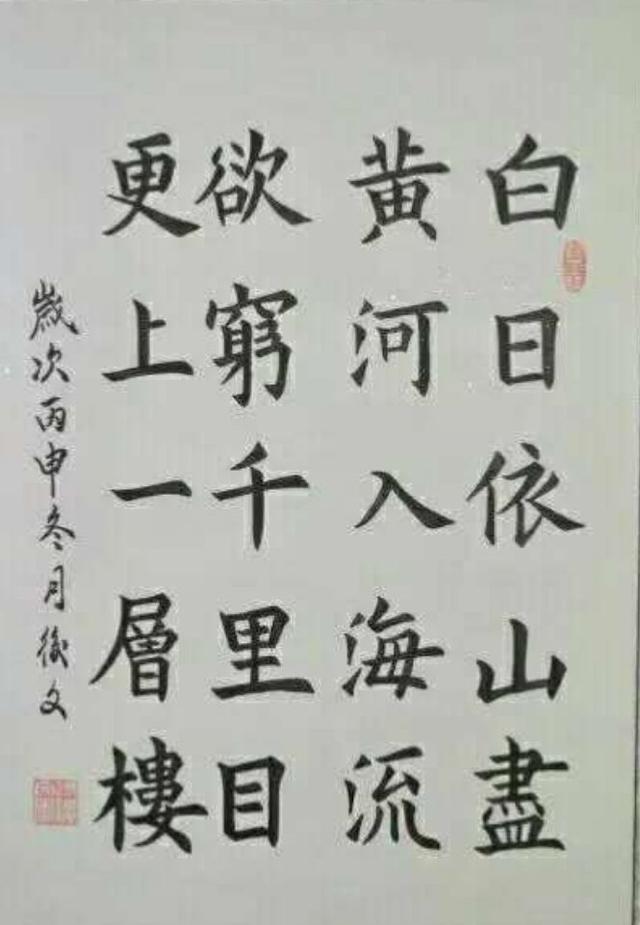 白日依山盡
黄河入海流
欲窮千里目
更上一層樓
歲次丙申冬月後文